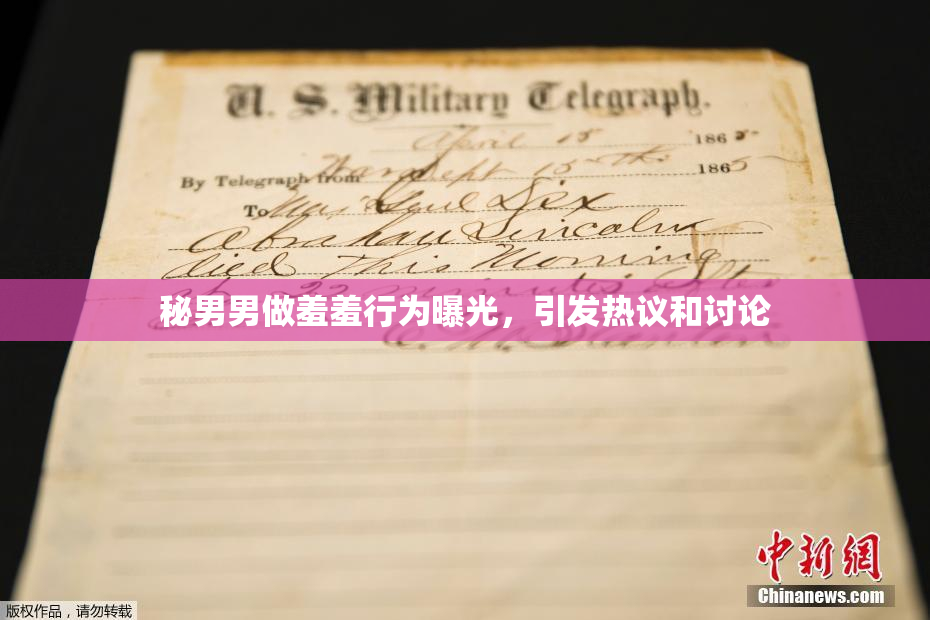 U. S. Military Telegraph.
April 15 1865
By Telegraph from War Dept 15th 1865
To Maj Genl Dix
Abraham Lincoln
died This Morning
at 22 minutes after
秘男男做羞羞行为曝光，引发热议和讨论
E. M. Stanton
中新网
Chinanews.com
版权作品，请勿转载